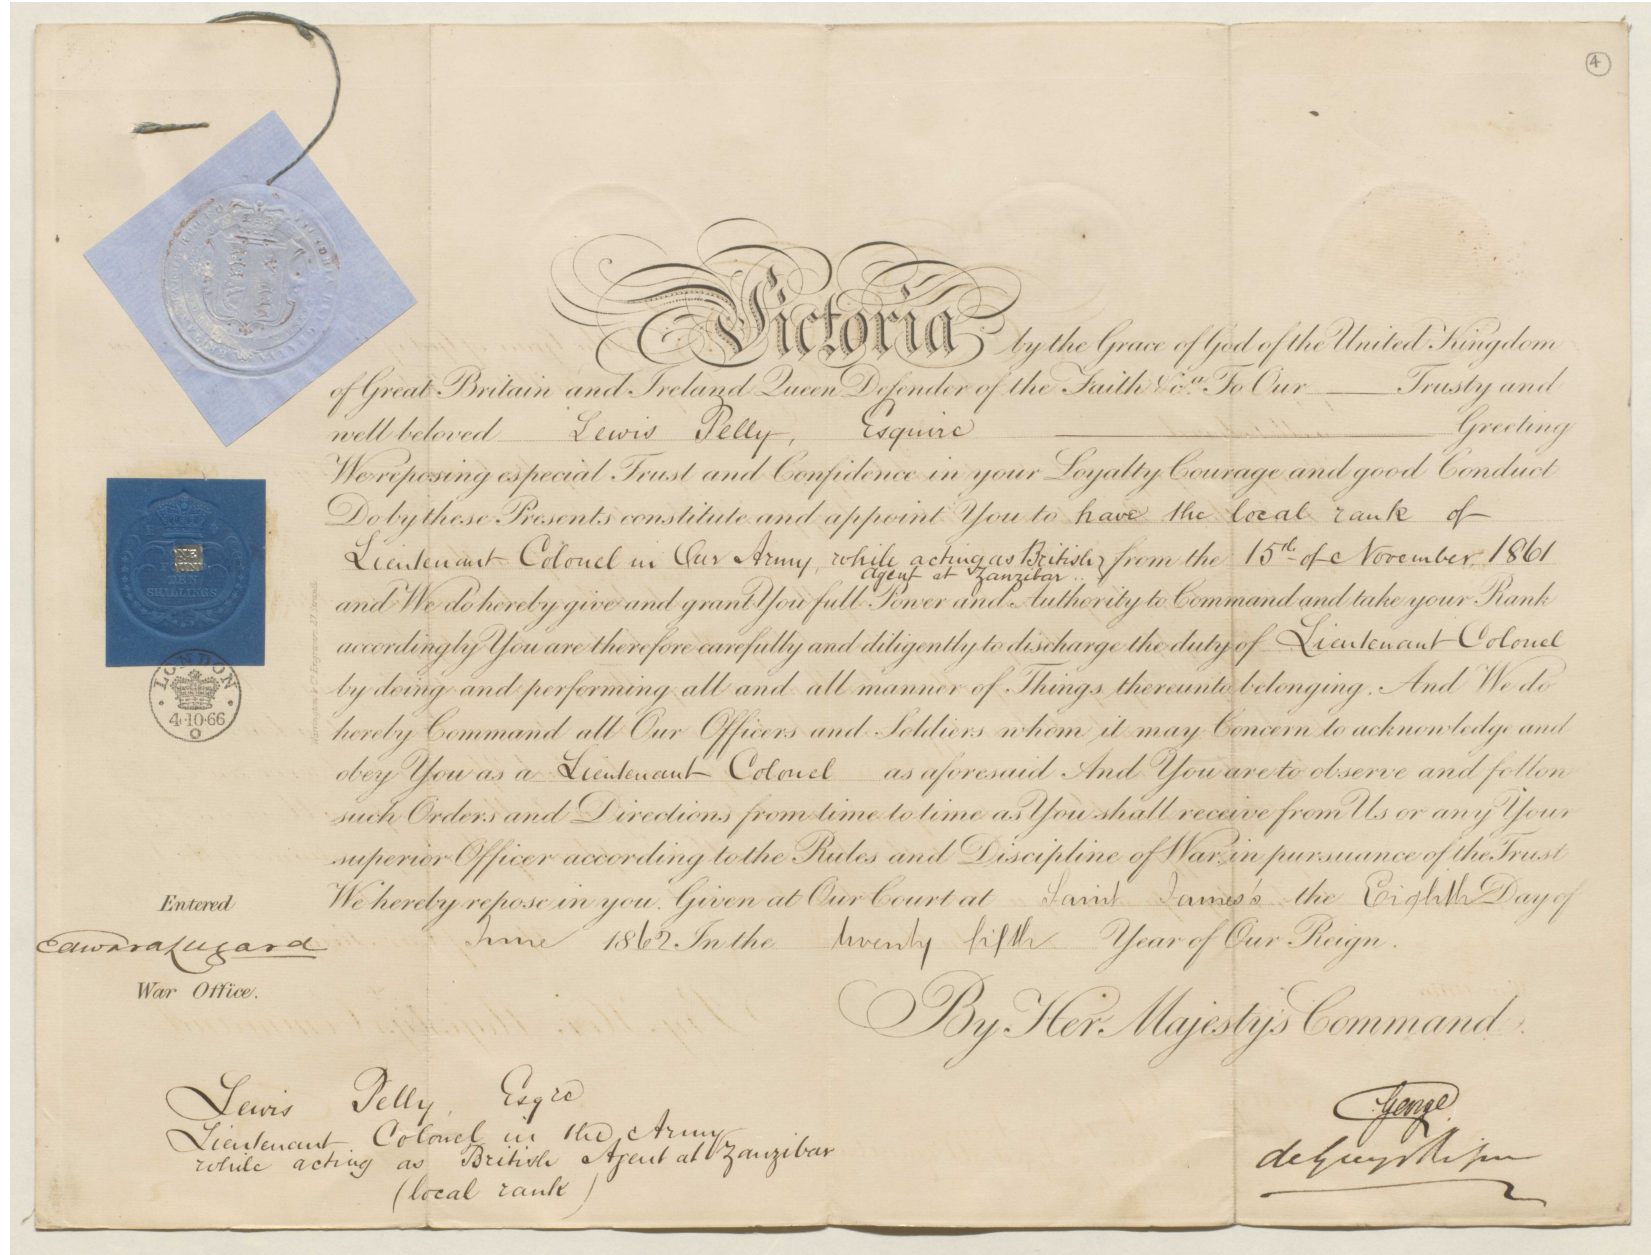 4
Victoria by the Grace of God of the United Kingdom
of Great Britain and Ireland Queen Defender of the Faith &c.a To Our Trusty and
well beloved Lewis Pelly, Esquire Greeting
We reposing especial Trust and Confidence in your Loyalty Courage and good Conduct
Do by these Presents constitute and appoint You to have the local rank of
Lieutenant Colonel in Our Army, while acting as British from the 15th of November, 1861
agent at Zanzibar
and We do hereby give and grant You full Power and Authority to Command and take your Rank
accordingly You are therefore carefully and diligently to discharge the duty of Lieutenant Colonel
by doing and performing all and all manner of Things thereunto belonging. And We do
hereby Command all Our Officers and Soldiers whom it may Concern to acknowledge and
obey You as a Lieutenant Colonel as aforesaid And You are to observe and follow
such Orders and Directions from time to time as You shall receive from Us or any Your
superior Officer according to the Rules and Discipline of War, in pursuance of the Trust
We hereby repose in you. Given at Our Court at Saint James's the Eighth Day of
June 1862 In the twenty fifth Year of Our Reign.
By Her Majesty's Command
TEN
SHILLINGS
LONDON
4·10·66
O
Entered
Edward Lugard
War Office.
Lewis Pelly, Esqre
Lieutenant Colonel in the Army
while acting as British Agent at Zanzibar
(local rank)
George
de Grey & Ripon